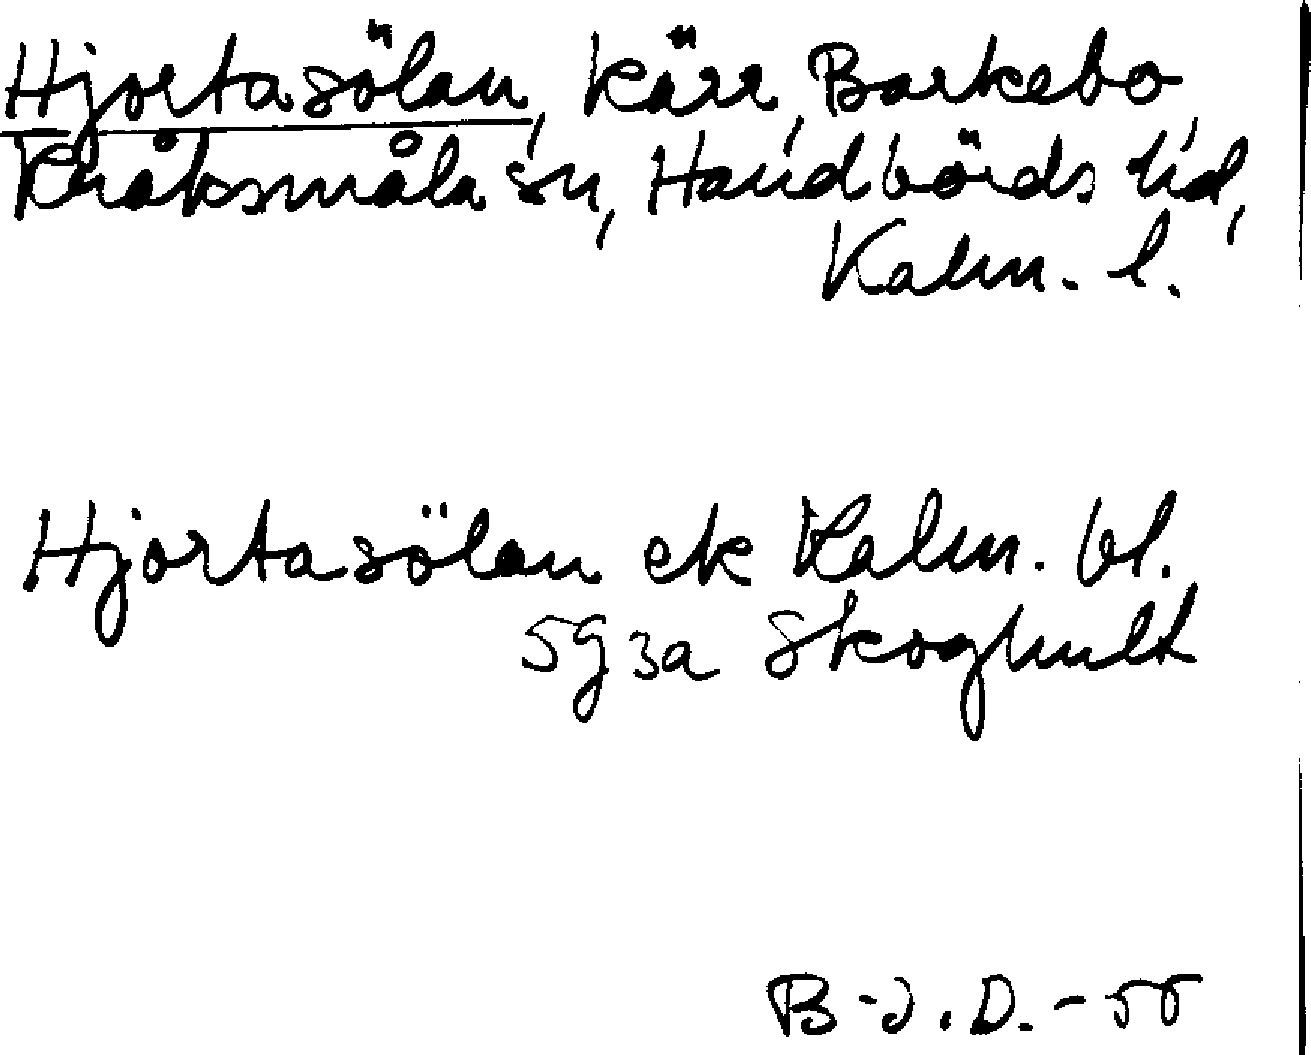 Hjortasölan, kärr, Barkebo,
Kråksmåla sn, Handbörds hd,
Kalm. l.
Hjortasölan ek Kalm. bl.
5g3a Skoghult
B-J.D.-55